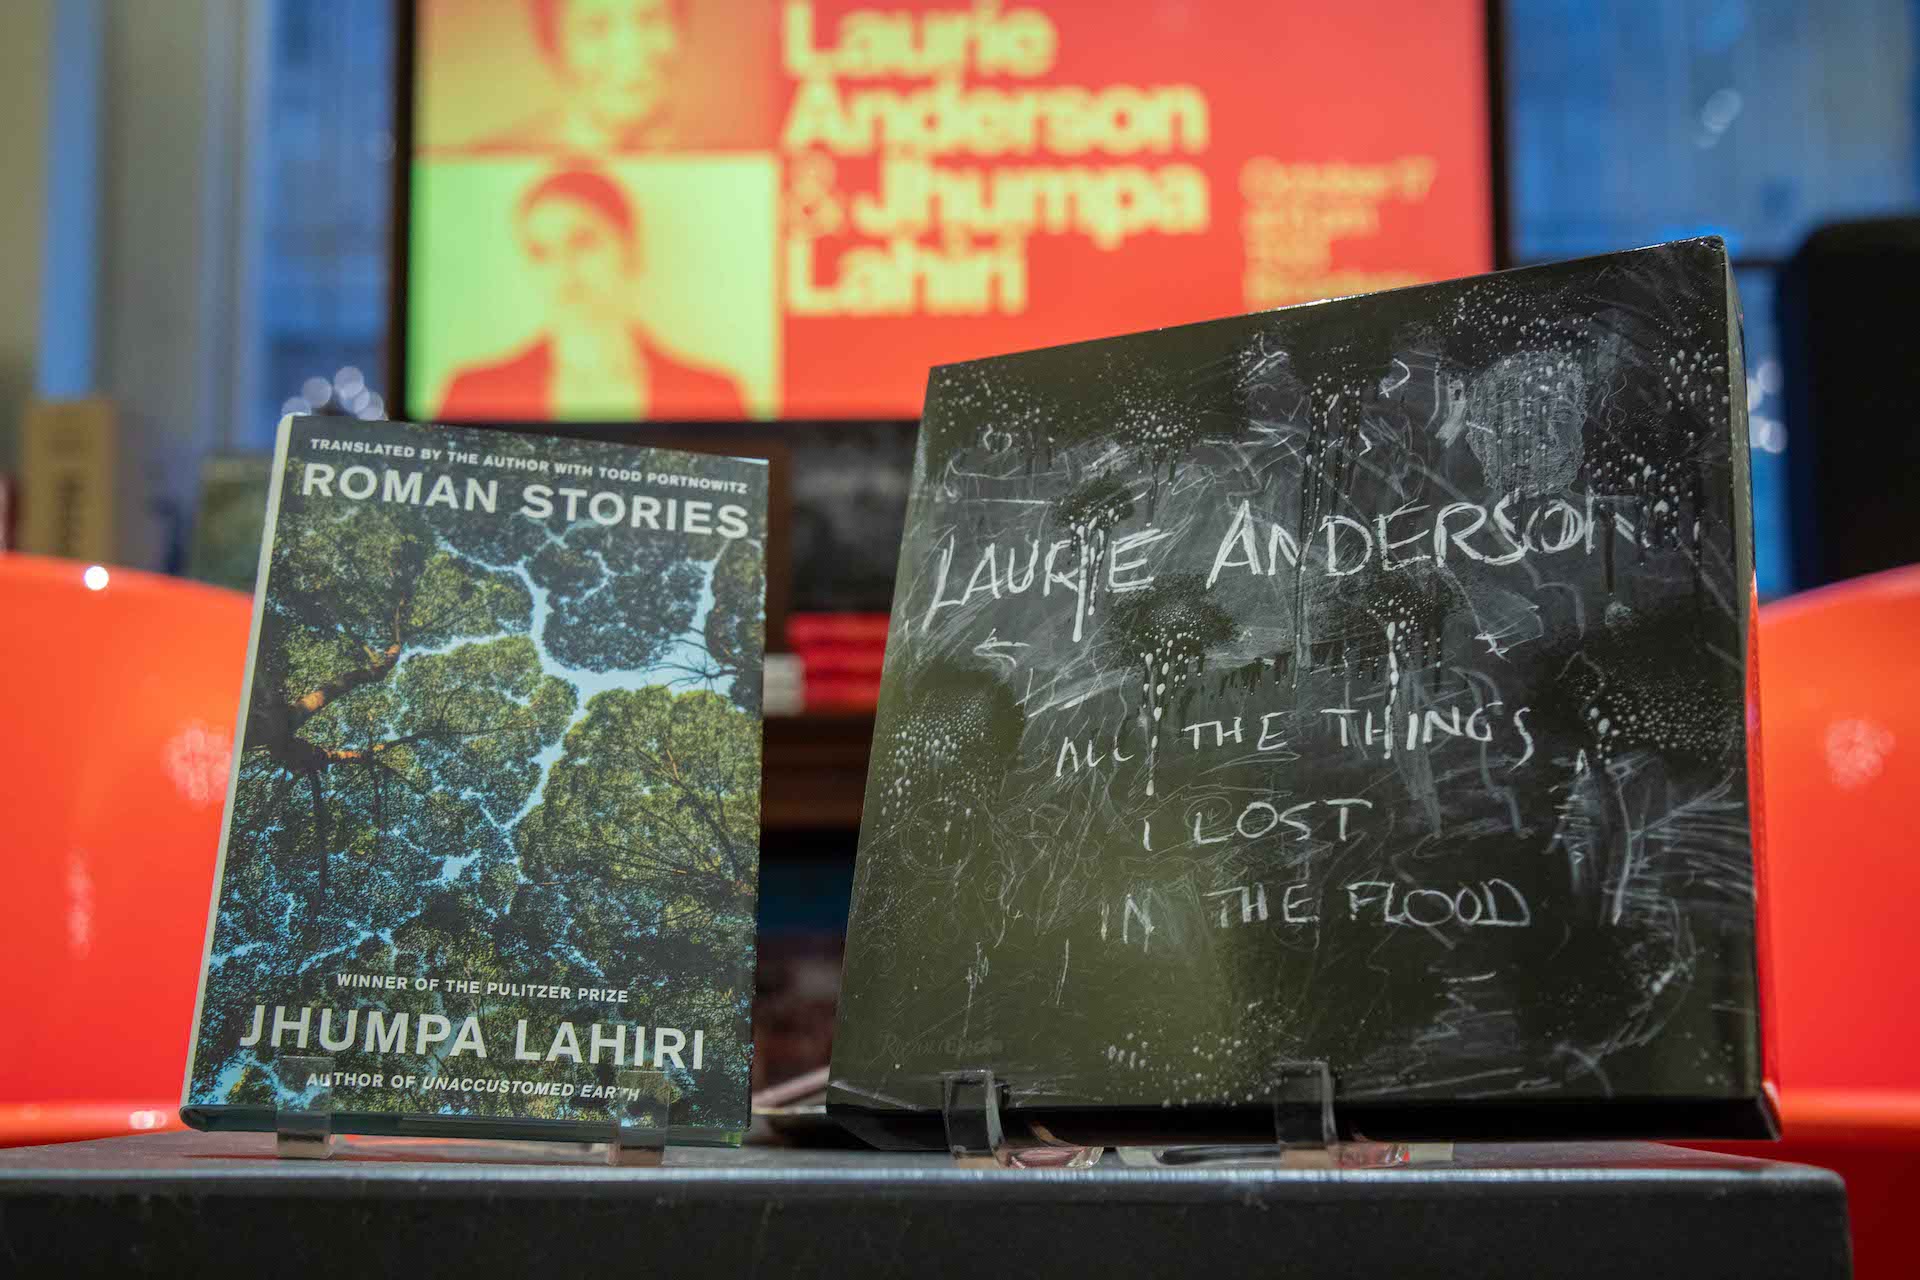 Laurie
Anderson
& Jhumpa
Lahiri
October 17
TRANSLATED BY THE AUTHOR WITH TODD PORTNOWITZ
ROMAN STORIES
WINNER OF THE PULITZER PRIZE
JHUMPA LAHIRI
AUTHOR OF UNACCUSTOMED EARTH
LAURIE ANDERSON
ALL THE THINGS
I LOST
IN THE FLOOD